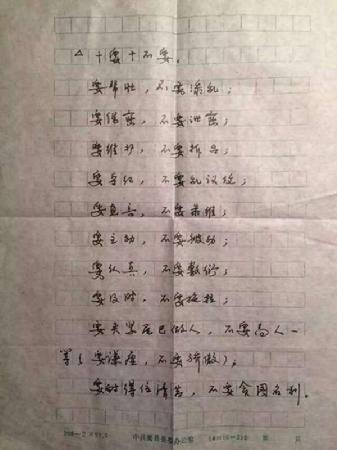 △十要十不要。
要帮忙，不要添乱；
要保密，不要泄密；
要维护，不要拆台；
要守纪，不要乱议统；
要负责，不要
要主动，不要被动；
要认真，不要敷衍；
要及时，不要拖拉；
要夹紧尾巴做人，不要高人一
等（要谦虚，不要骄傲）；
要耐得住清苦，不要贪图名利。